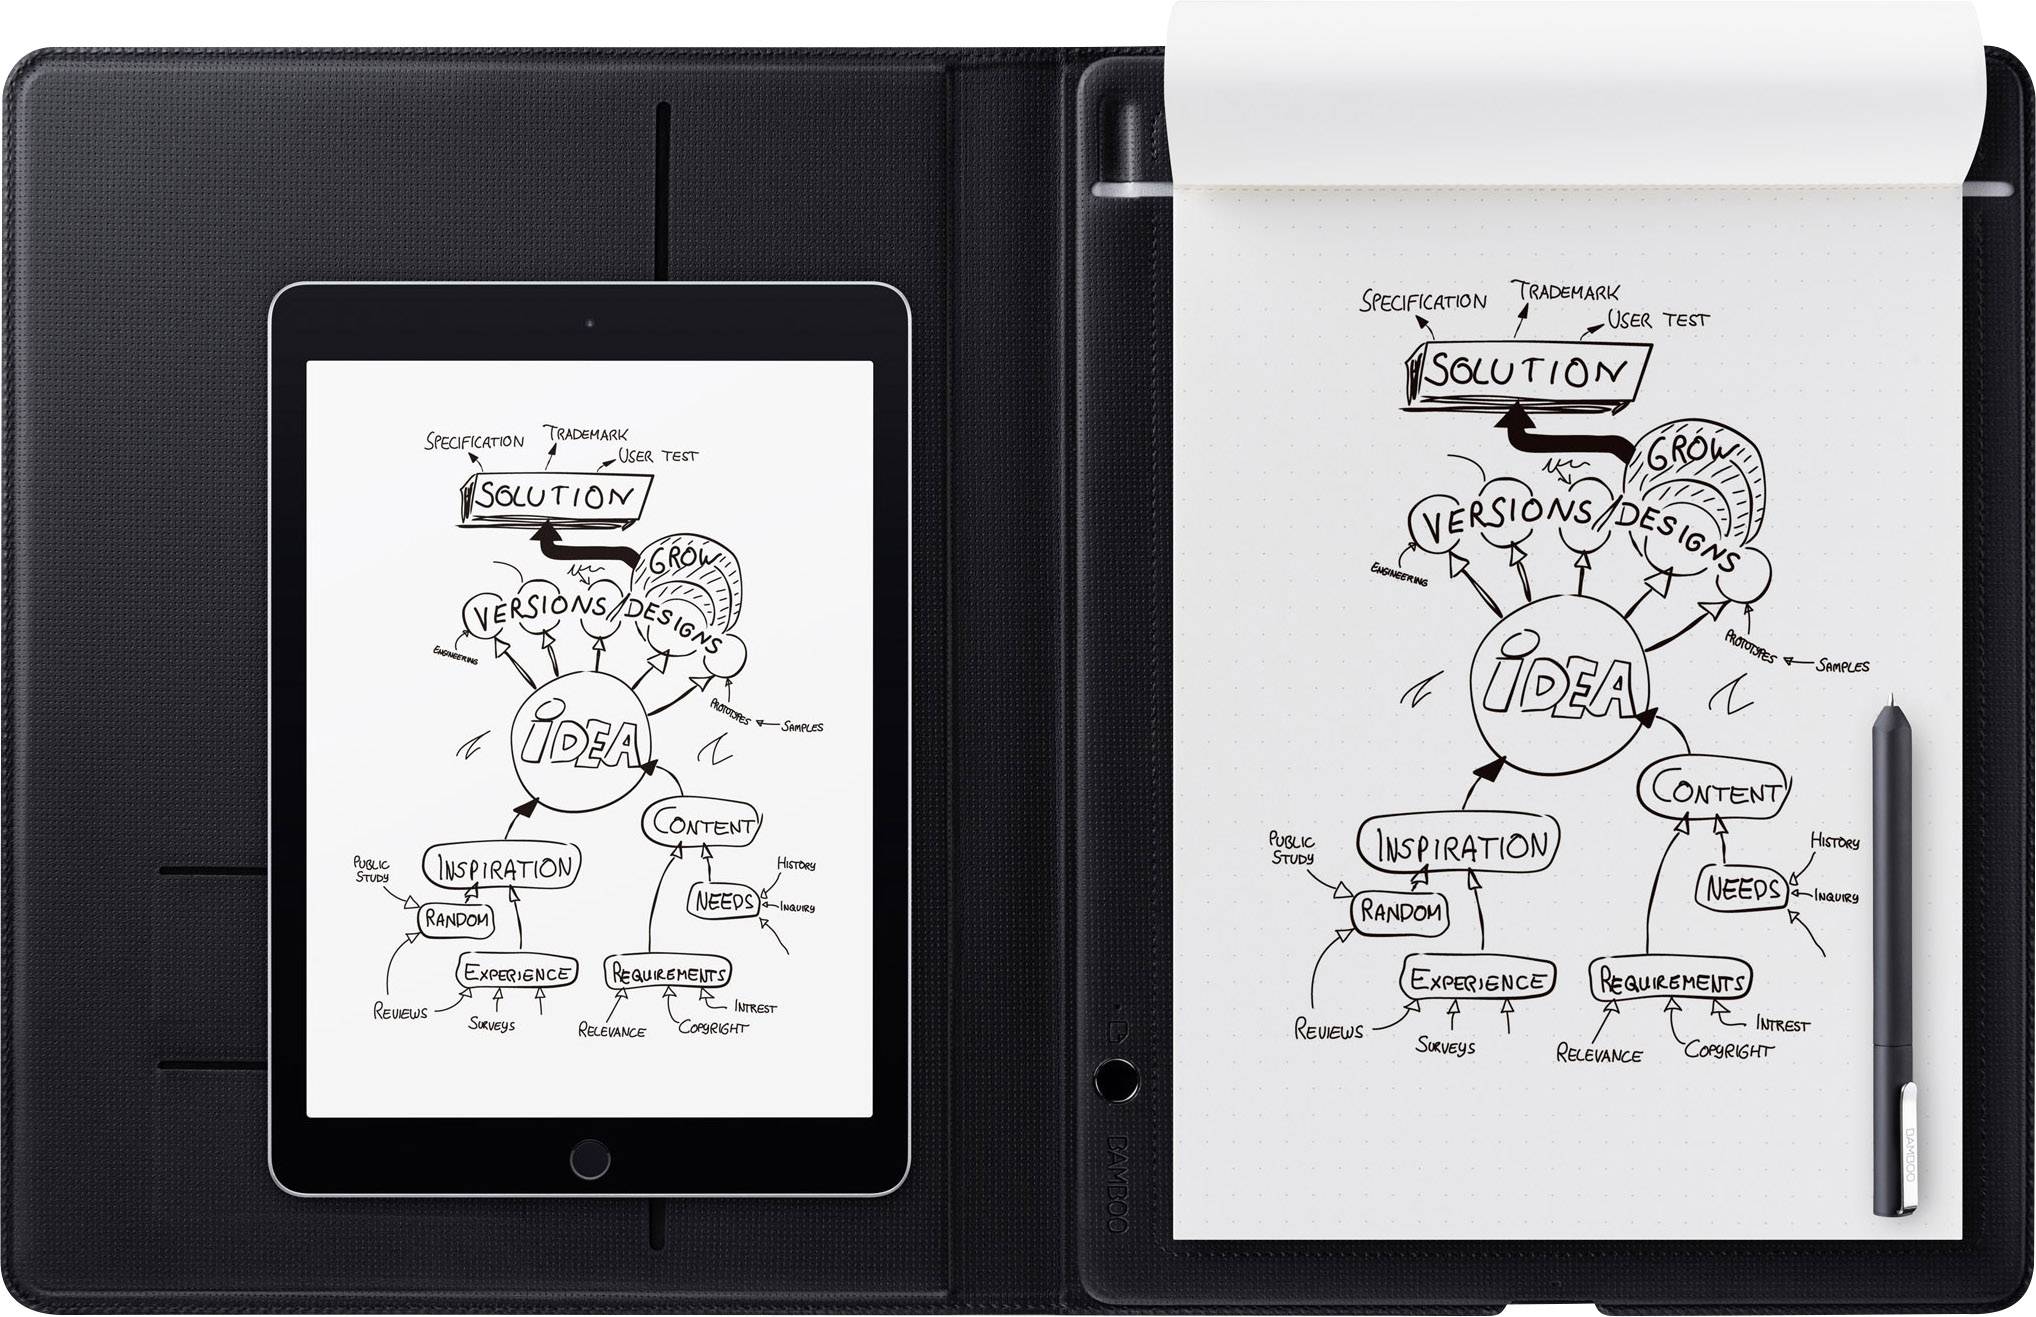 SPECIFICATION
TRADEMARK
USER TEST
SOLUTION
GROW
VERSIONS/DESIGNS
ENGINEERING
PROTOTYPES
SAMPLES
iDEA
CONTENT
INSPIRATION
PUBLIC
STUDY
HISTORY
NEEDS
INQUIRY
RANDOM
EXPERIENCE
REQUIREMENTS
REVIEWS
SURVEYS
RELEVANCE
COPYRIGHT
INTREST
SPECIFICATION
TRADEMARK
USER TEST
SOLUTION
GROW
VERSIONS/DESIGNS
ENGINEERING
PROTOTYPES
SAMPLES
iDEA
CONTENT
INSPIRATION
PUBLIC
STUDY
HISTORY
NEEDS
INQUIRY
RANDOM
EXPERIENCE
REQUIREMENTS
REVIEWS
SURVEYS
RELEVANCE
COPYRIGHT
INTREST
BAMBOO
BAMBOO